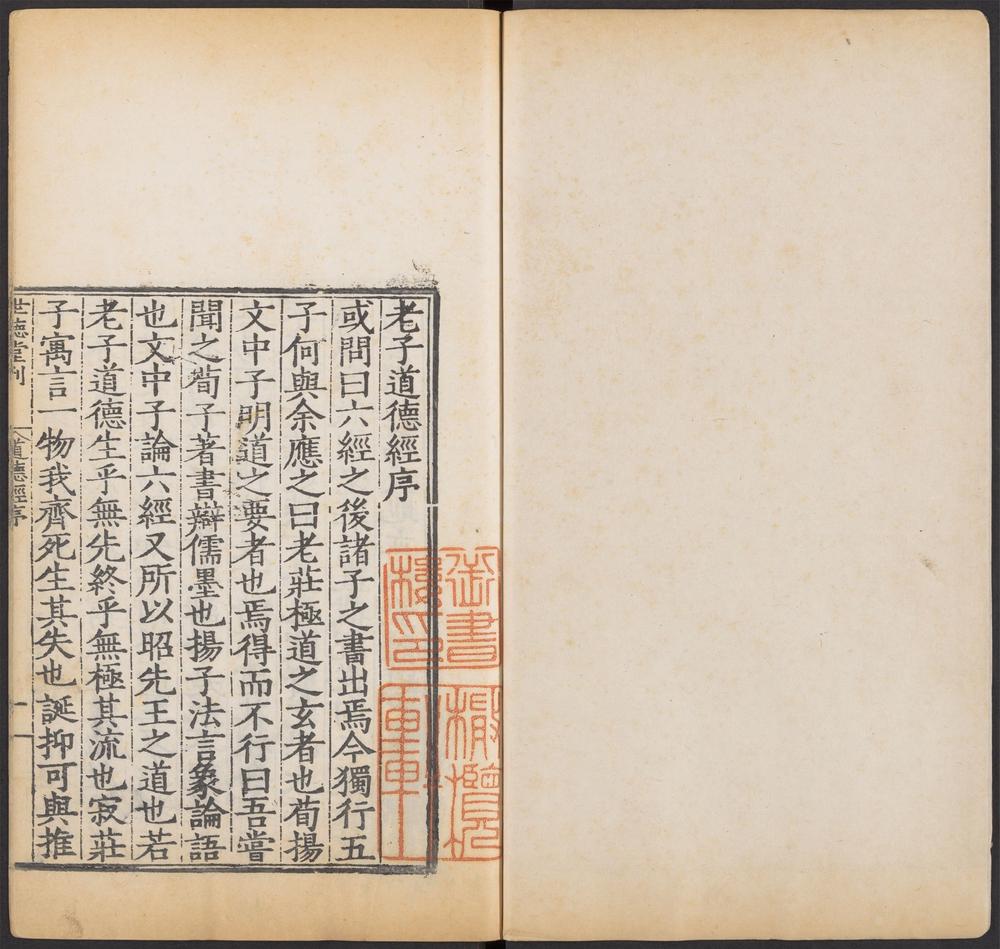 老子道德經序
或問曰六經之後諸子之書出焉今獨行五
子何與余應之曰老莊極道之玄者也荀揚
文中子明道之要者也焉得而不行曰吾嘗
聞之荀子著書辯儒墨也揚子法言象論語
也文中子論六經又所以昭先王之道也若
老子道德生乎無先終乎無極其流也寂莊
子寓言一物我齊死生其失也誕抑可與推
世德堂刊
道德經序
一
御書
樓印